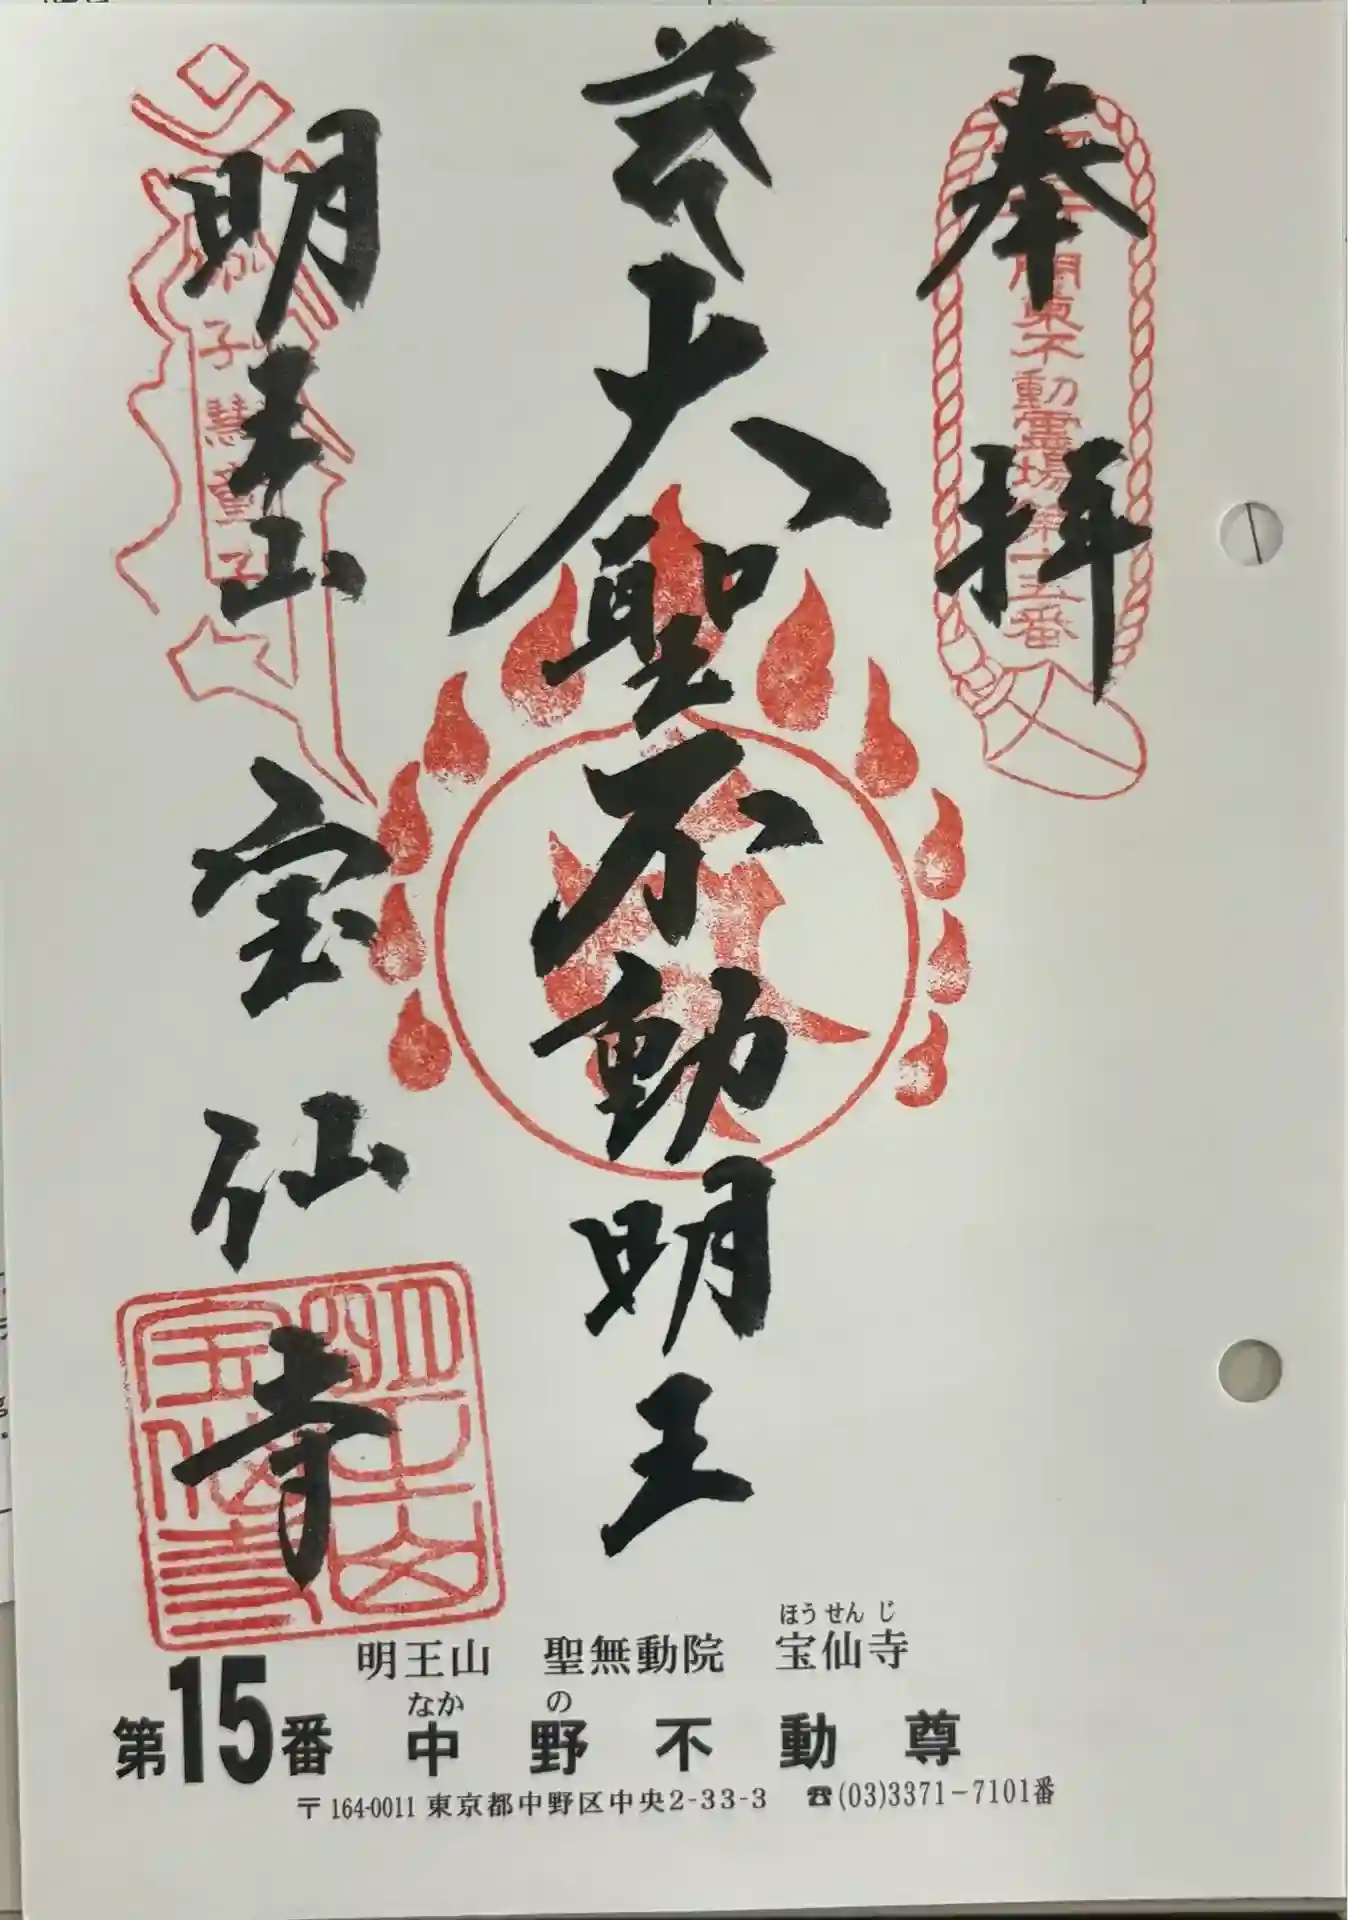 奉拝
関東不動霊場第十五番
大聖不動明王
明王山
宝仙寺
童子
明王山宝仙寺
ほうせんじ
明王山 聖無動院 宝仙寺
なかの
第15番 中野不動尊
〒164-0011 東京都中野区中央2-33-3 ☎(03)3371-7101番